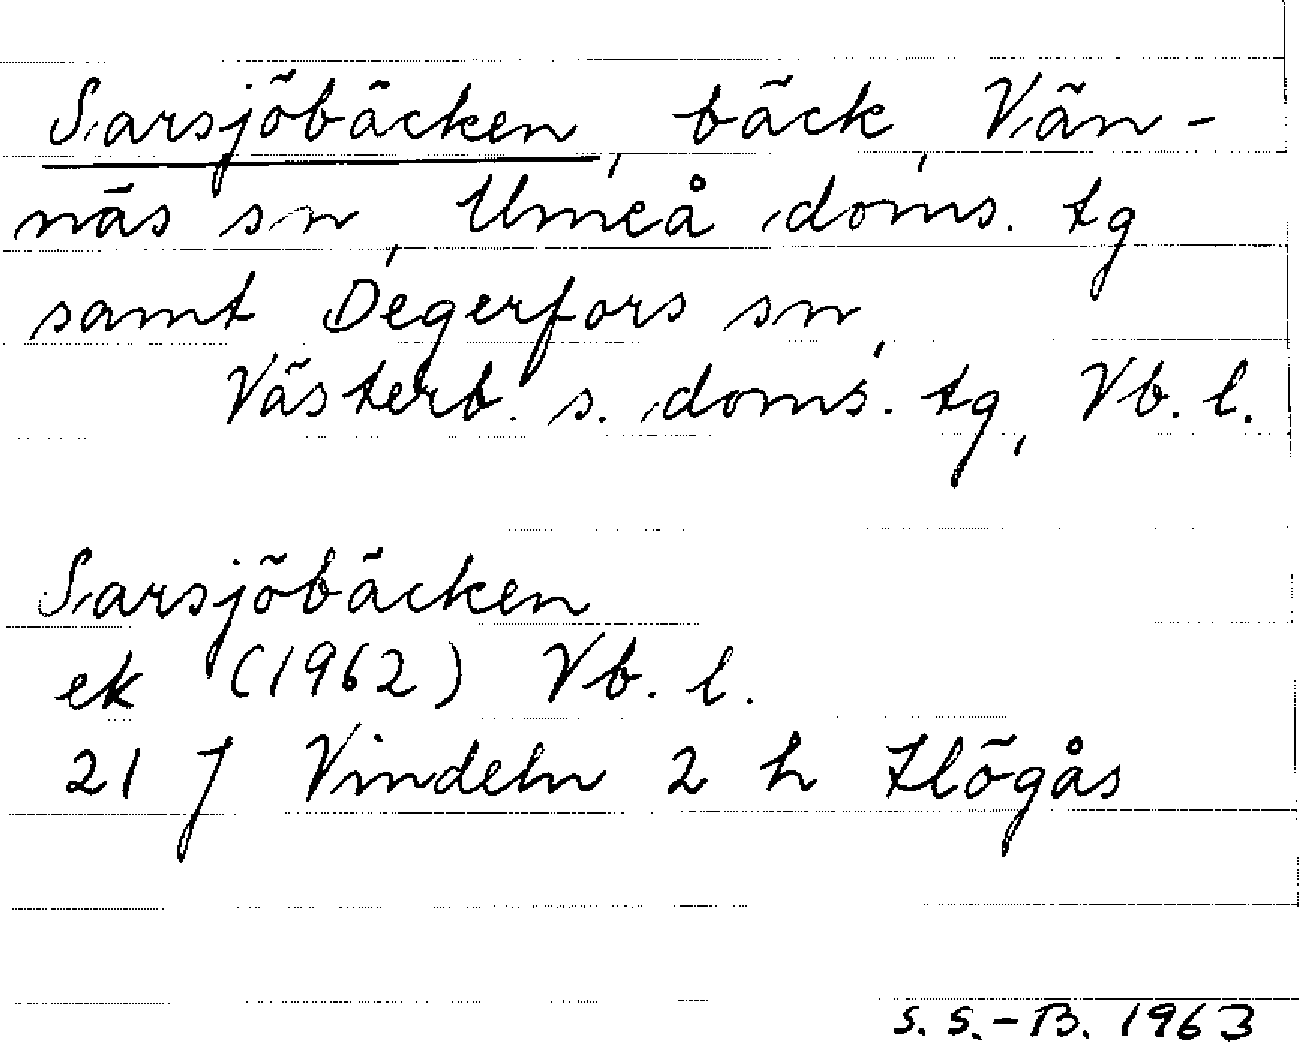 Sarsjöbäcken, bäck, Vän-
näs sn, Umeå doms. tg
samt Degerfors sn,
Västerb. s. doms. tg, Vb. l.
Sarsjöbäcken
ek (1962) Vb. l.
21 J Vindeln 2 h Högås
S. S.-B. 1963